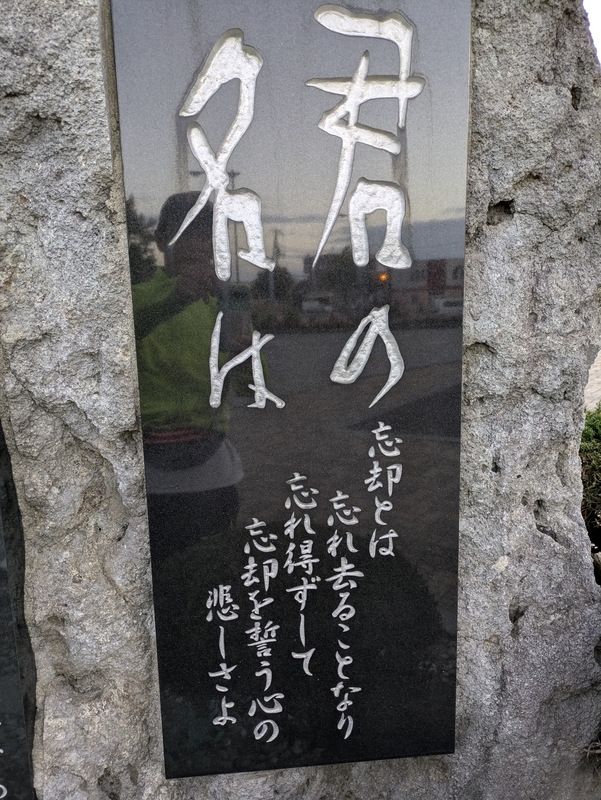 君の
名は
忘却とは
忘れ去ることなり
忘れ得ずして
忘却を誓う心の
悲しさよ